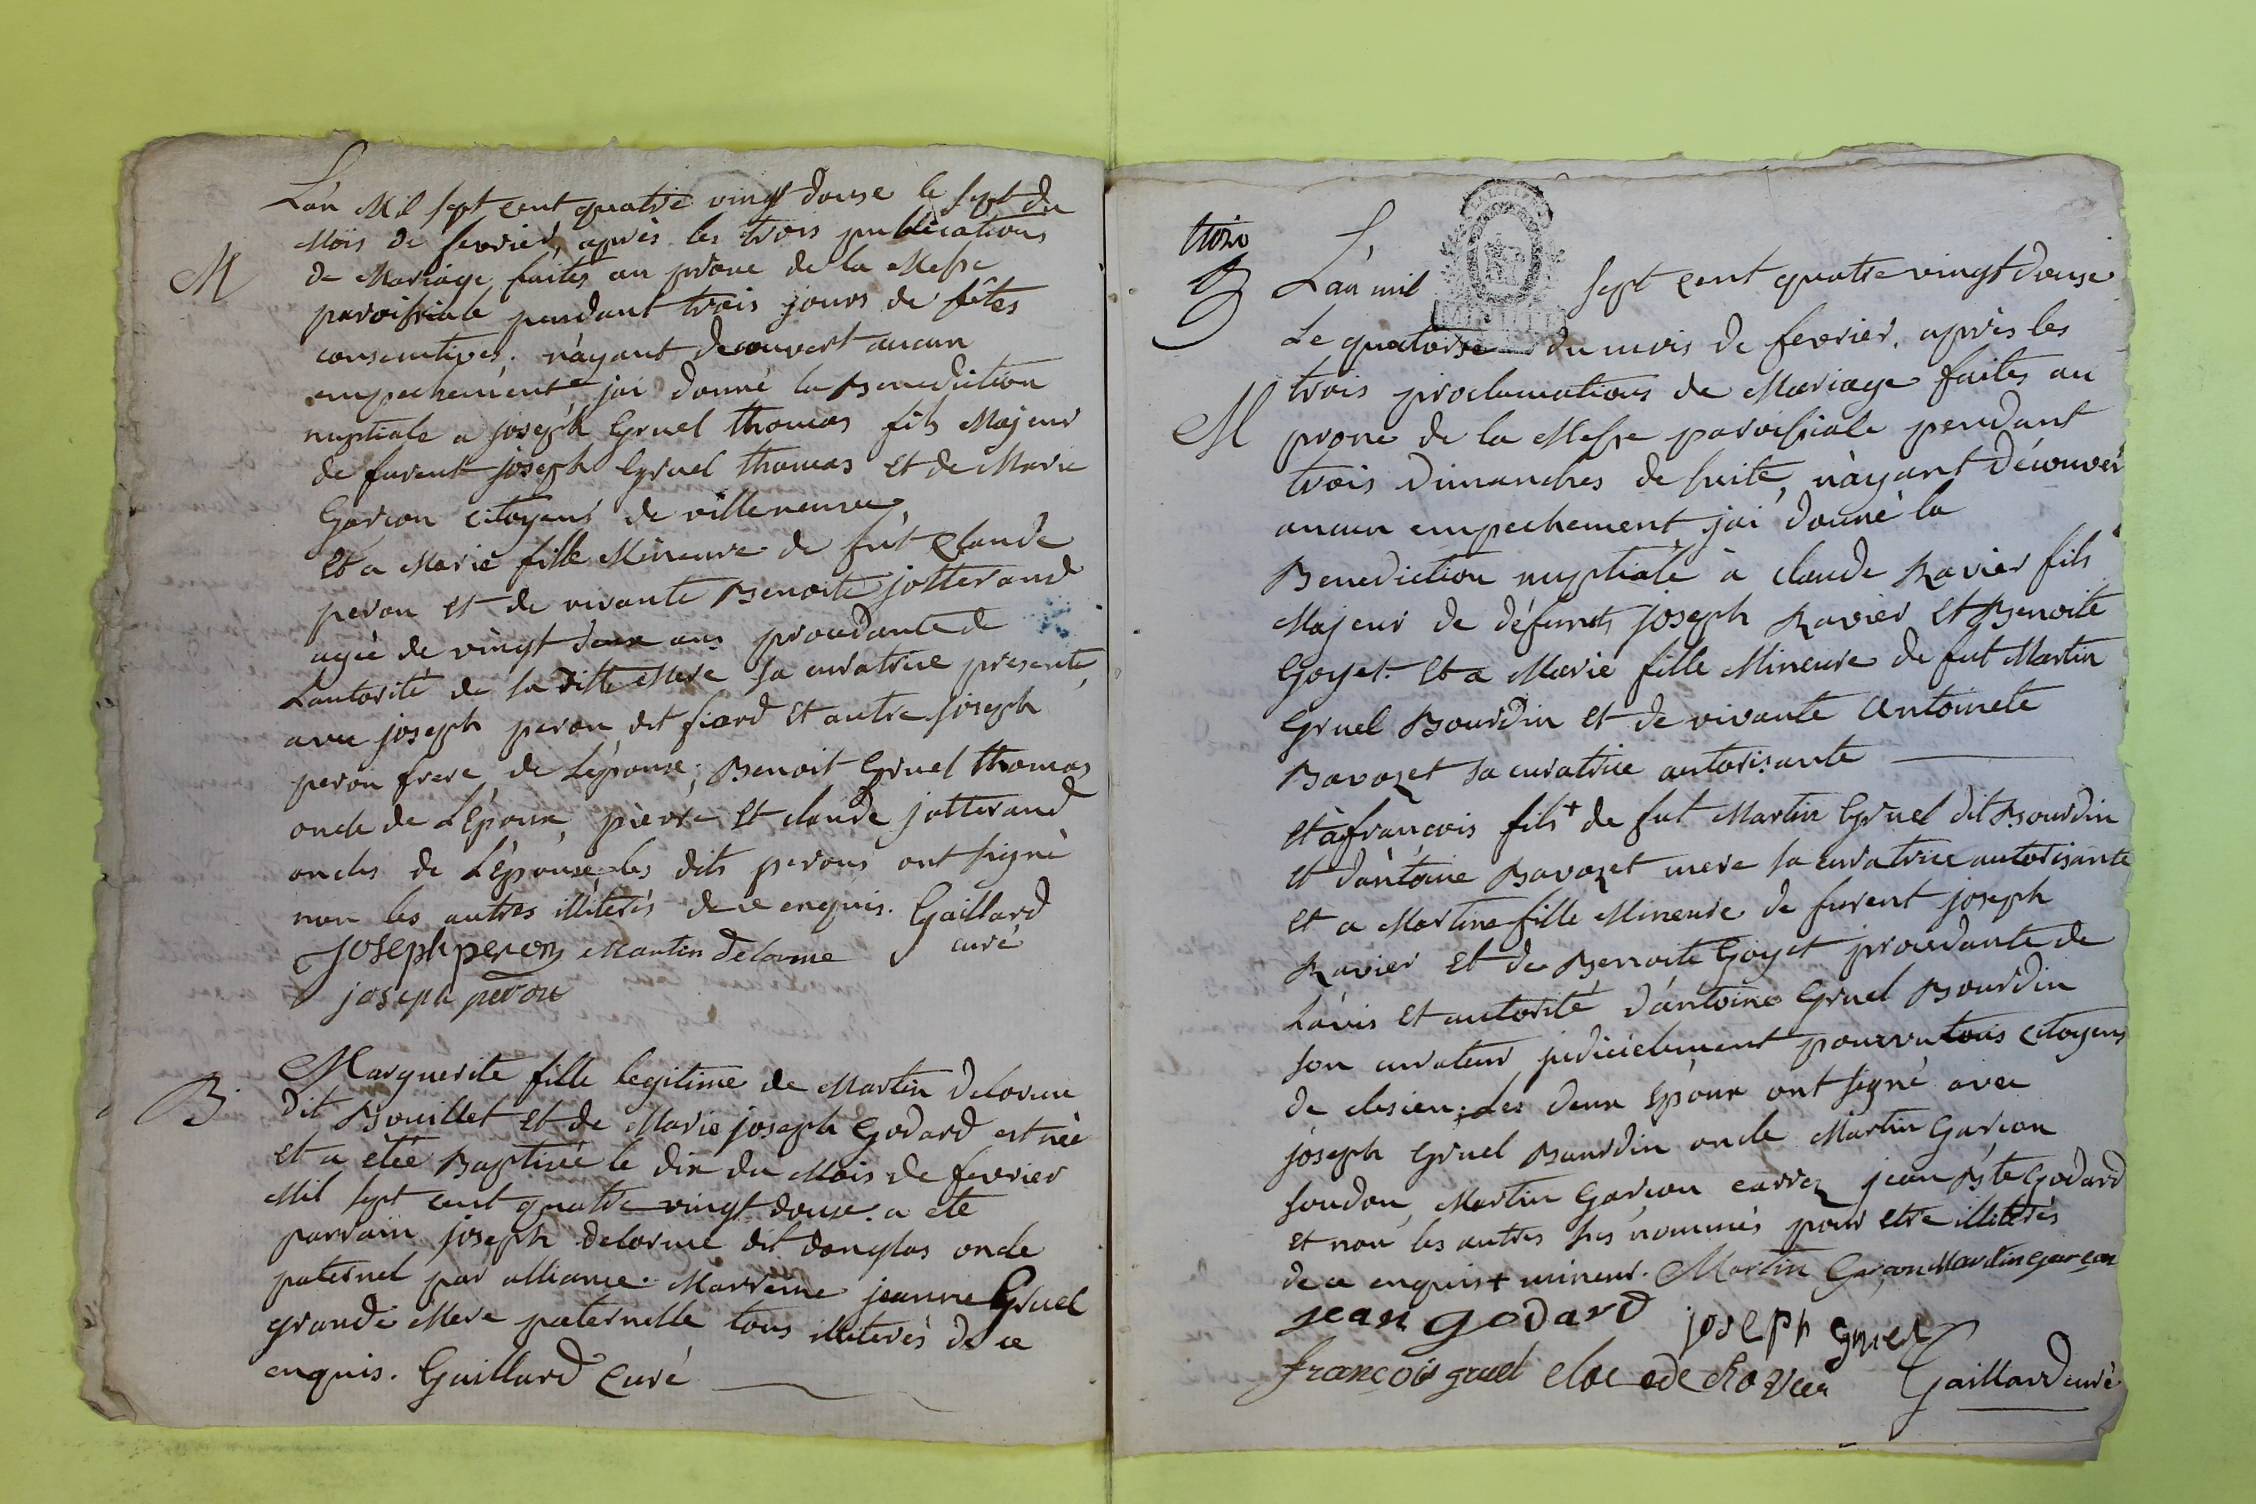 L'an Mil sept cent quatre vingt douse le sept du
Mois de fevrier, après les trois publications
M
de Mariage faites au prone de la Messe
paroissiale pendant trois jours de fêtes
consecutives. n'ayant decouvert aucun
empechement jai donné la Benediction
nuptiale a joseph Gruel thomas fils Majeur
de furent joseph Gruel thomas et de Marie
Garcon citoyens de villeneuve,
et a Marie fille Mineure de fut Claude
peron et de vivante Benoite jotterand
agée de vingt deux ans procedante de
L'autorité de sa ditte Mere sa curatrice presente,
avec joseph peron dit fiard et autre joseph
peron frere de L'épouse; Benoit Gruel thomas
oncle de L'Epoux, pierre et claude jotterand
oncles de L'Epouse les dits perons ont signé
non les autres illiterés de ce enquis. Gaillard
curé
joseph peron Martin Delorme
joseph peron
B.
Marguerite fille legitime de Martin Delorme
dit Bouillet et de Marie joseph Godard est née
et a etée Baptisée le dix du Mois de fevrier
Mil sept cent quatre vingt douse. a ete
parrain joseph Delorme dit douglas oncle
paternel par alliance. Marreine jeanne Gruel
grande Mere paternelle tous illiterés de ce
enquis. Gaillard Curé
trois
L'
L'an mil sept cent quatre vingt douse
Le quatorse du mois de fevrier. après les
trois proclamations de Mariage faites au
M
prone de la Messe paroissiale pendant
trois Dimanches de suite, n'ayant découver
aucun empechement jai donné la
Benediction nuptiale à claude Ravier fils
Majeur de défunts joseph Ravier et Benoite
Goyet. et a Marie fille Mineure de fut Martin
Gruel Bourdin et de vivante Antoinete
Bavozet sa curatrice autorisante
et à françois fils + de fut Martin Gruel dit Bourdin
et d'antoine Bavozet mere sa curatrice autorisante
et a Martine fille Mineure de furent joseph
Ravier et de Benoite Goyet procedante de
L'avis et autorité d'antoine Gruel Bourdin
son curateur judicielement pourvu tous citoyens
de clesieu; Les deux Epoux ont signé avec
joseph Gruel Bourdin oncle Martin Garcon
soudon, Martin Garçon carrez jean Bte Godard
et non les autres sus nommés pour etre illiterés
de ce enquis + mineur. Martin Garçon Martin garçon
jean godard joseph gruel
françois gruel Gaillard curé